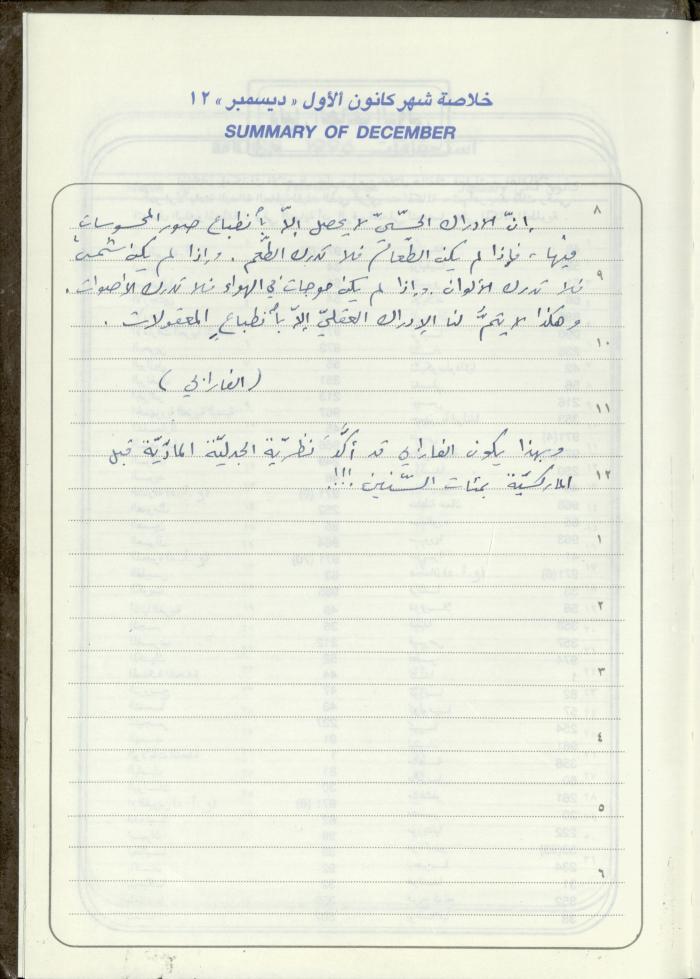 خلاصة شهر كانون الأول « ديسمبر » ١٢
SUMMARY OF DECEMBER
٨
إنّ الادراك الحسّيّ لا يحصل إلاّ بأنطباع صور المحسوسات
فيها ، فإذا لم يكن الطّعام فلا تدرك الطّعم . وإذا لم يكن شمس
٩
فلا تدرك الألوان . وإذا لم يكن موجات في الهواء فلا تدرك الأصوات .
وهكذا لا يتمُّ لنا الإدراك العقليّ إلاّ بأنطباعِ المعقولات .
١٠
( الفارابي )
١١
وبهذا يكون الفارابي قد أكَّدَ نظريّة الجدليّة المادّيّة قبل
١٢
الماركسيّة بمئات السّنين !!!.
١
٢
٣
٤
٥
٦